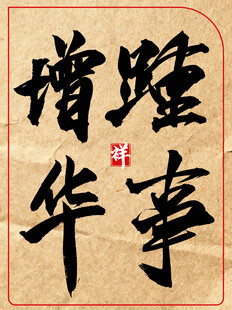 踵事
增华
祥